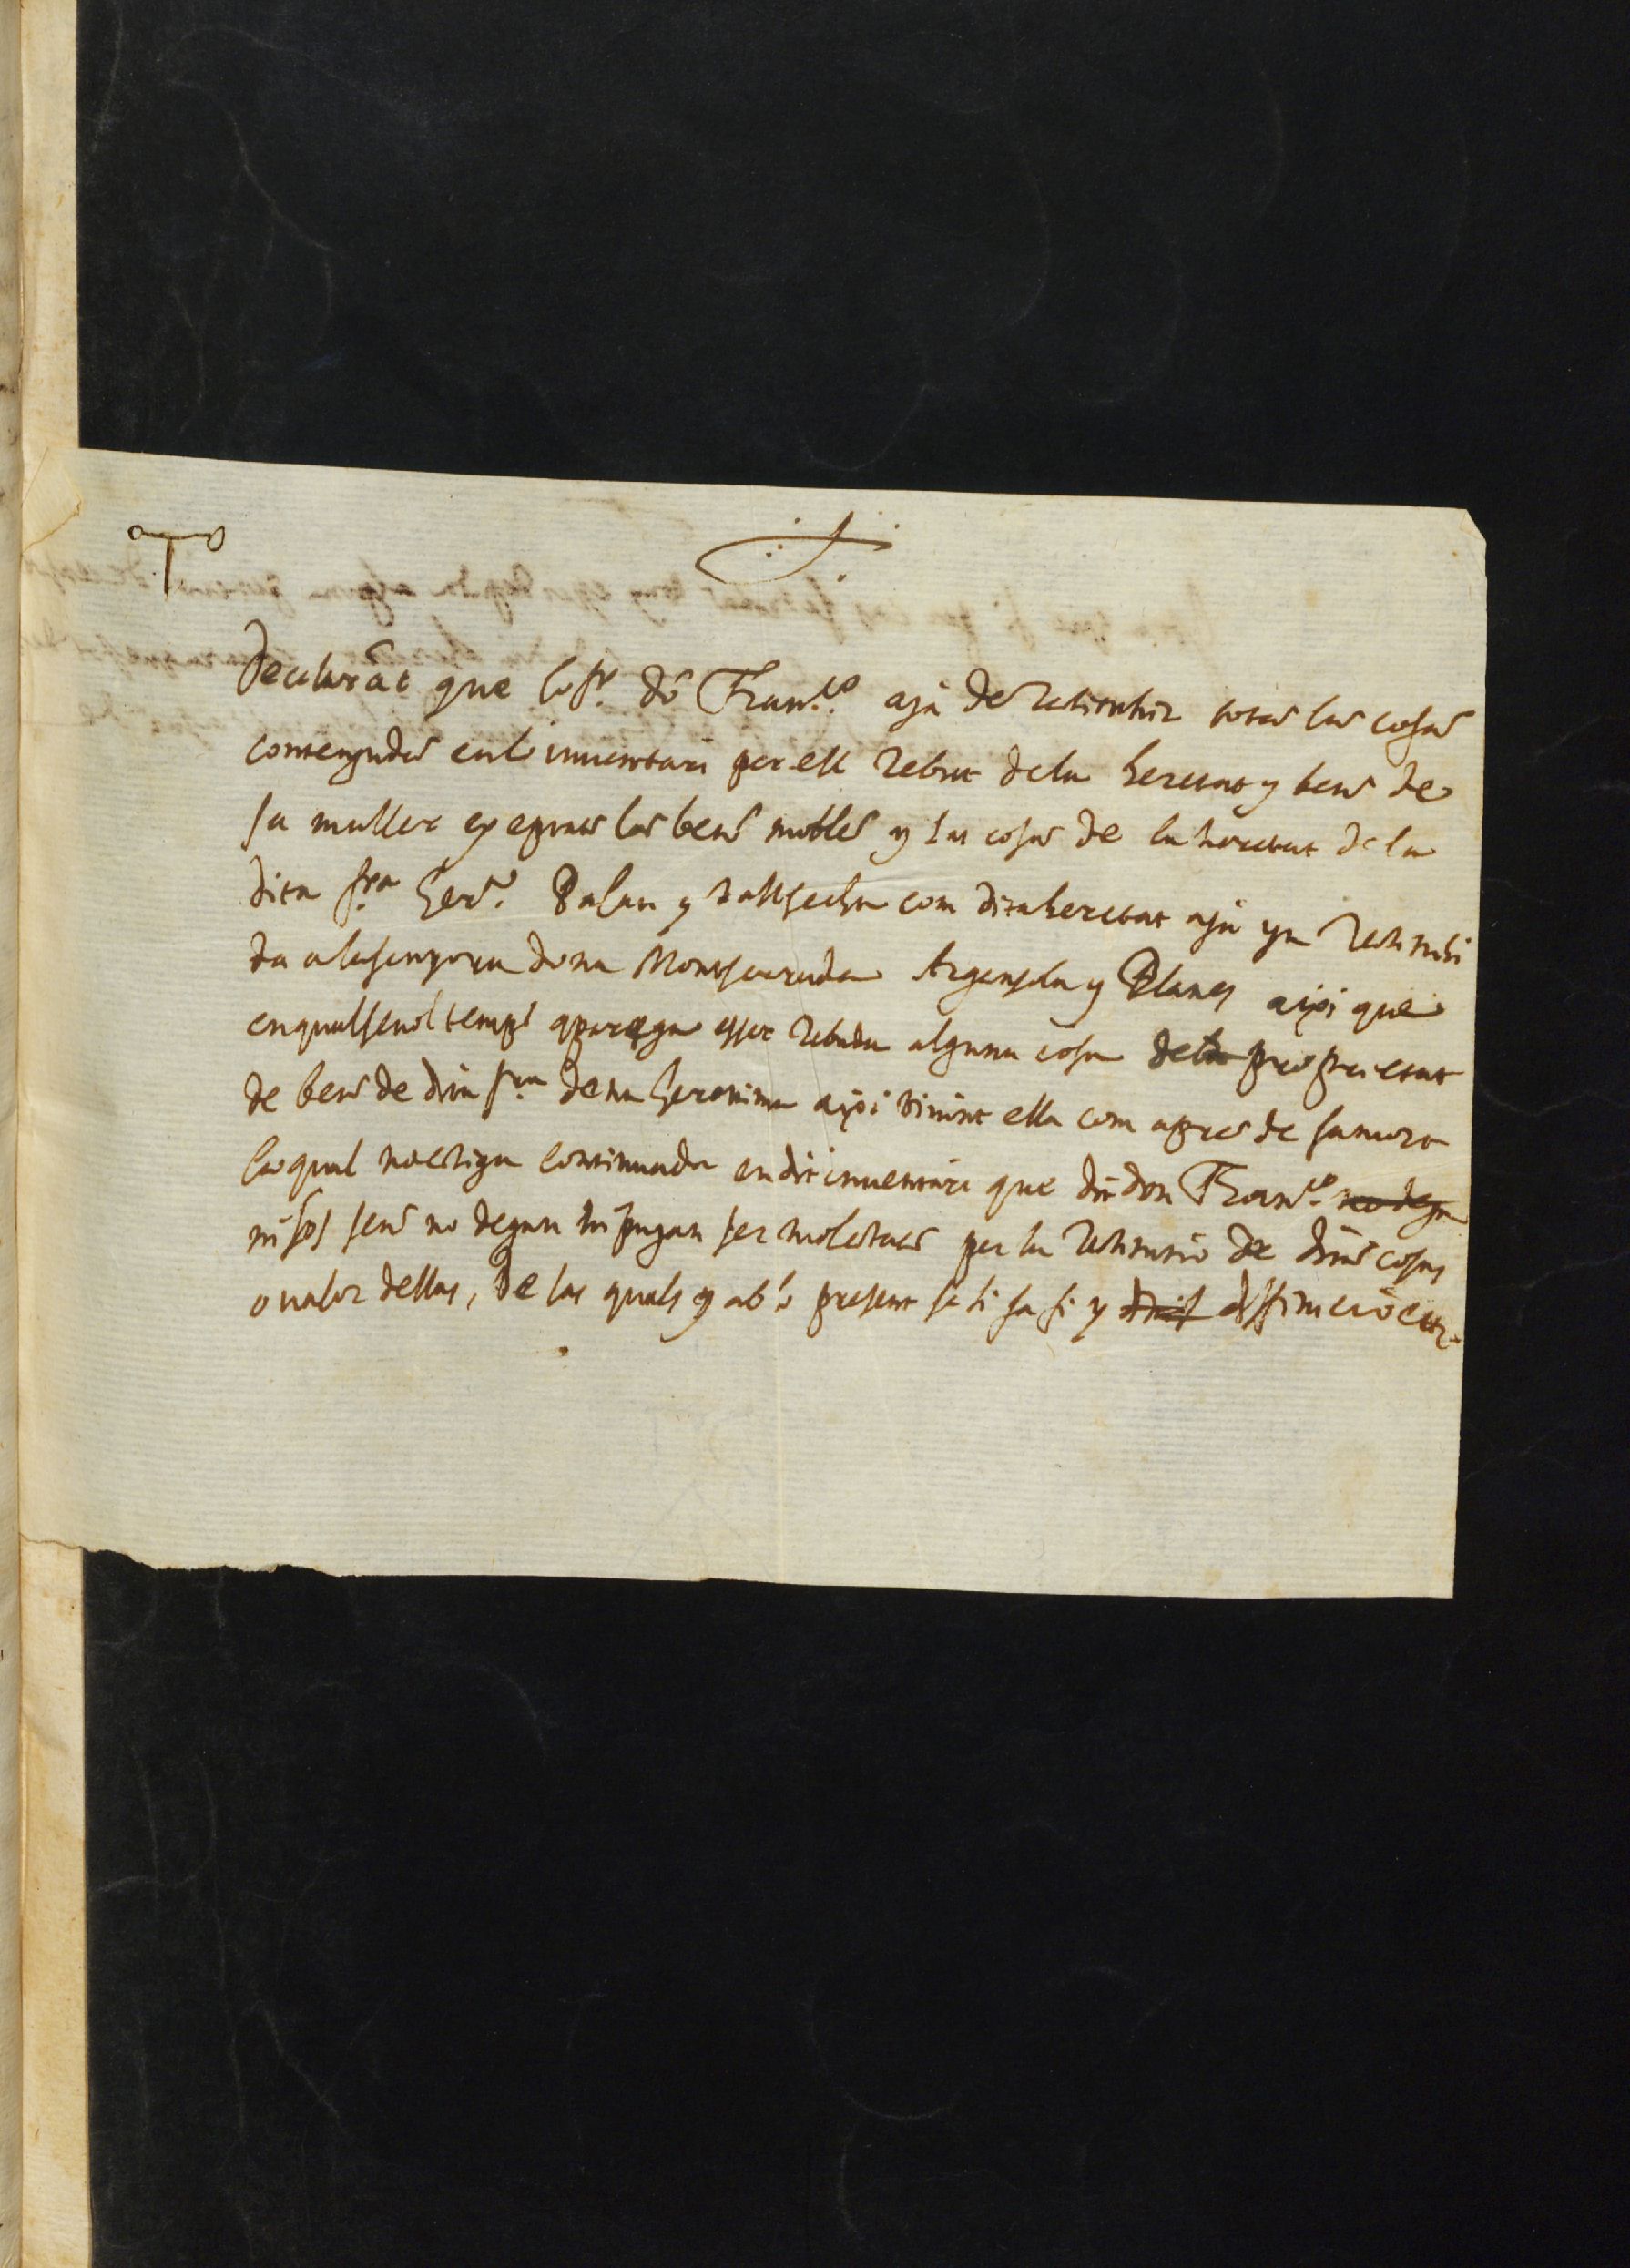 Declarāt que lo sr. dō Franco. aja de restituhir totas las cosas
contengudas en lo inuentari per ell rebut de la heretat y bens de
sa muller exeptats los bens mobles y las cosas de la heretat de la
dita sra. Herma. Palau y com dita heretat aja ya restituhi
da a la senyora dona Montserrada Argensola y Planes aixi que
en qualseuol temps aparega esser rebuda alguna cosa de la proprietat
de bens de dita sra. dona Heronima aixi uiuint ella com apres de sa mort
la qual no estiga continuada en dit inuentari que dit don Franco. no dega
ni los seus no degan ni pugan ser molestats per la restitutio de ditas cosas
o valor dellas, de las quals y ab lo present se li fa fi y diffinicio etc.